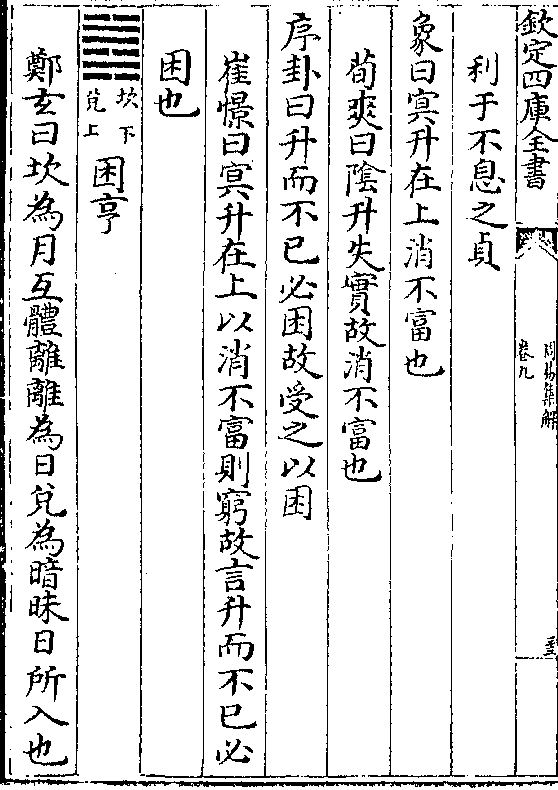 欽定四庫全書
周易集解
卷九
利于不息之貞
象曰冥升在上消不富也
荀爽曰陰升失實故消不富也
序卦曰升而不已必困故受之以困
崔憬曰冥升在上以消不富則窮故言升而不已必
困也
坎下
兌上
困亨
鄭玄曰坎為月互體離離為日兌為暗昧日所入也